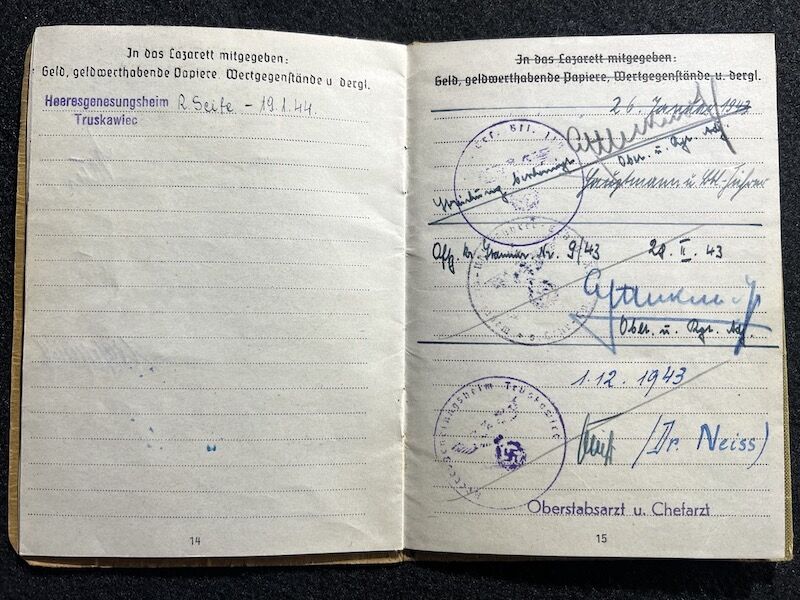 In das Lazarett mitgegeben:
Geld, geldwerthabende Papiere, Wertgegenstände u dergl.
Heeresgenesungsheim R. Seite - 19.1.44.
Truskawiec
14
In das Lazarett mitgegeben:
Geld, geldwerthabende Papiere, Wertgegenstände u. dergl.
26. Januar 1943
Oblt. u. Rgt. Adj.
Hauptmann u. Führer
Nr. 9/43 28. II. 43
Oblt. u. Rgt. Adj.
1.12.1943
Heeresgenesungsheim Truskawiec
(Dr. Neiss)
Oberstabsarzt u. Chefarzt
15